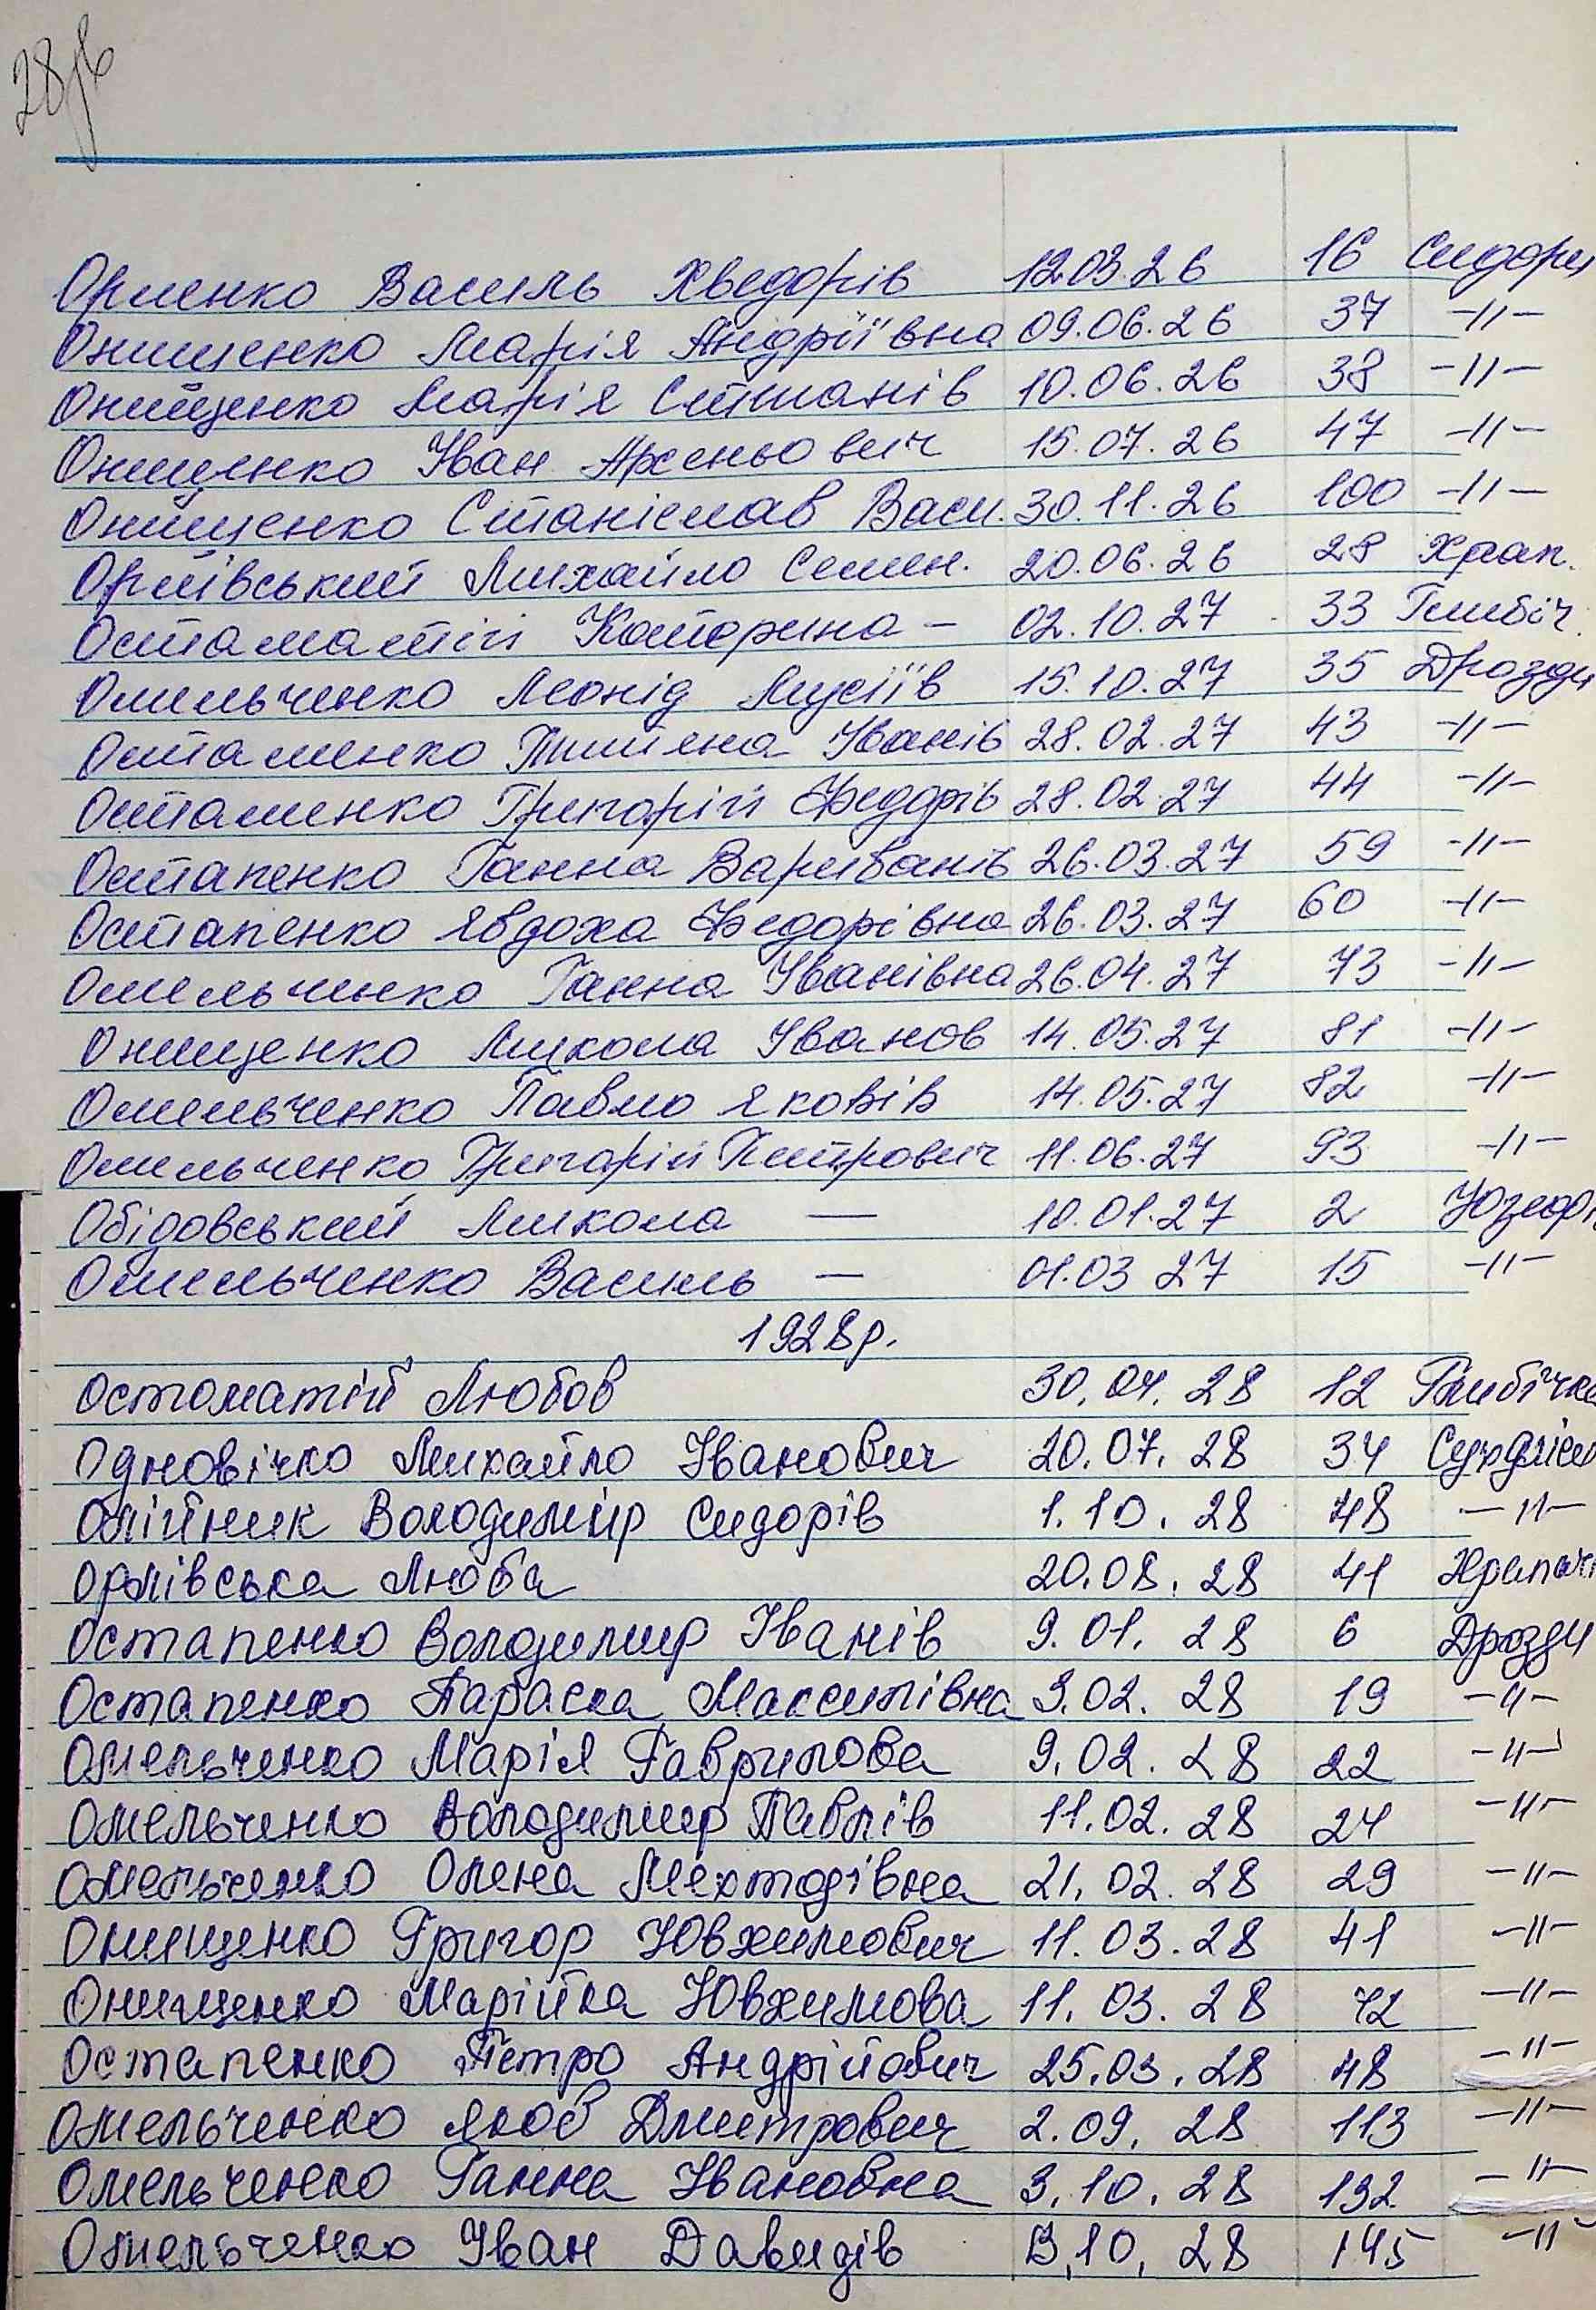 28зв
Орленко Василь Хведорів 12.03.26 16 Сидори
Онищенко Марія Андріївна 09.06.26 37 -//-
Онищенко Марія Степанів 10.06.26 38 -//-
Онищенко Іван Арсеньович 15.07.26 47 -//-
Онищенко Станіслав Васи. 30.11.26 100 -//-
Орлівський Михайло Семен. 20.06.26 28 Храп.
Остаматій Катерина - 02.10.27 33 Глибіч.
Омельченко Леонід Мусіїв 15.10.27 35 Дрозди
Остапенко Тетяна Іванів 28.02.27 43 -//-
Остапенко Григорій Федорів 28.02.27 44 -//-
Остапенко Ганна Вариванів 26.03.27 59 -//-
Остапенко Явдоха Федорівна 26.03.27 60 -//-
Омельченко Ганна Іванівна 26.04.27 73 -//-
Онищенко Микола Іванов 14.05.27 81 -//-
Омельченко Павло Яковів 14.05.27 82 -//-
Омельченко Григорій Петрович 11.06.27 93 -//-
Обідовський Микола — 10.01.27 2 Юзефі
Омельченко Василь — 01.03 27 15 -//-
1928р.
Остоматій Любов 30.04.28 12 Глибічка
Одновічко Михайло Іванович 20.07.28 34
Олійник Володимир Сидорів 1.10.28 48 -//-
Орлівська Люба 20.08.28 41 Храпач
Остапенко Володимир Іванів 9.01.28 6 Дрозди
Остапенко Параска Максимівна 3.02.28 19 -//-
Омельченко Марія Гаврилова 9.02.28 22 -//-
Омельченко Володимир Павлів 11.02.28 24 -//-
Омельченко Олена Мехтодівна 21.02.28 29 -//-
Онищенко Григор Ювхимович 11.03.28 41 -//-
Онищенко Марійка Ювхимова 11.03.28 42 -//-
Остапенко Петро Андрійович 25.03.28 48 -//-
Омельченко Яков Дмитрович 2.09.28 113 -//-
Омельченко Ганна Івановна 3.10.28 132 -//-
Омельченко Іван Давидів 10.28 145 -//-